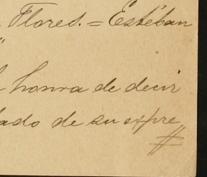 Flores. = Estéban
"
honra de decir
de su espre